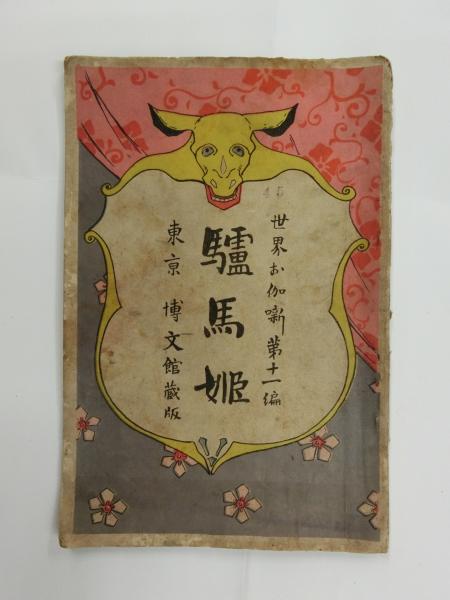 世界お伽噺第十一編
驢馬姫
東京 博文館蔵版